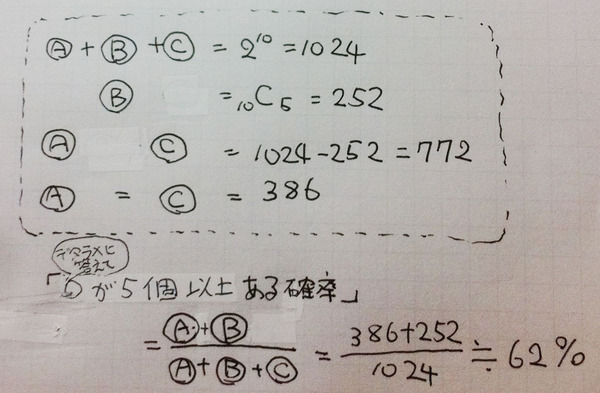 Ⓐ+Ⓑ+Ⓒ = 2¹⁰ = 1024
Ⓑ = ₁₀C₅ = 252
Ⓐ Ⓒ = 1024-252 = 772
Ⓐ = Ⓒ = 386
デタラメに
答えて
「〇が5個以上ある確率」
= Ⓐ+Ⓑ / Ⓐ+Ⓑ+Ⓒ = 386+252 / 1024 ≒ 62%